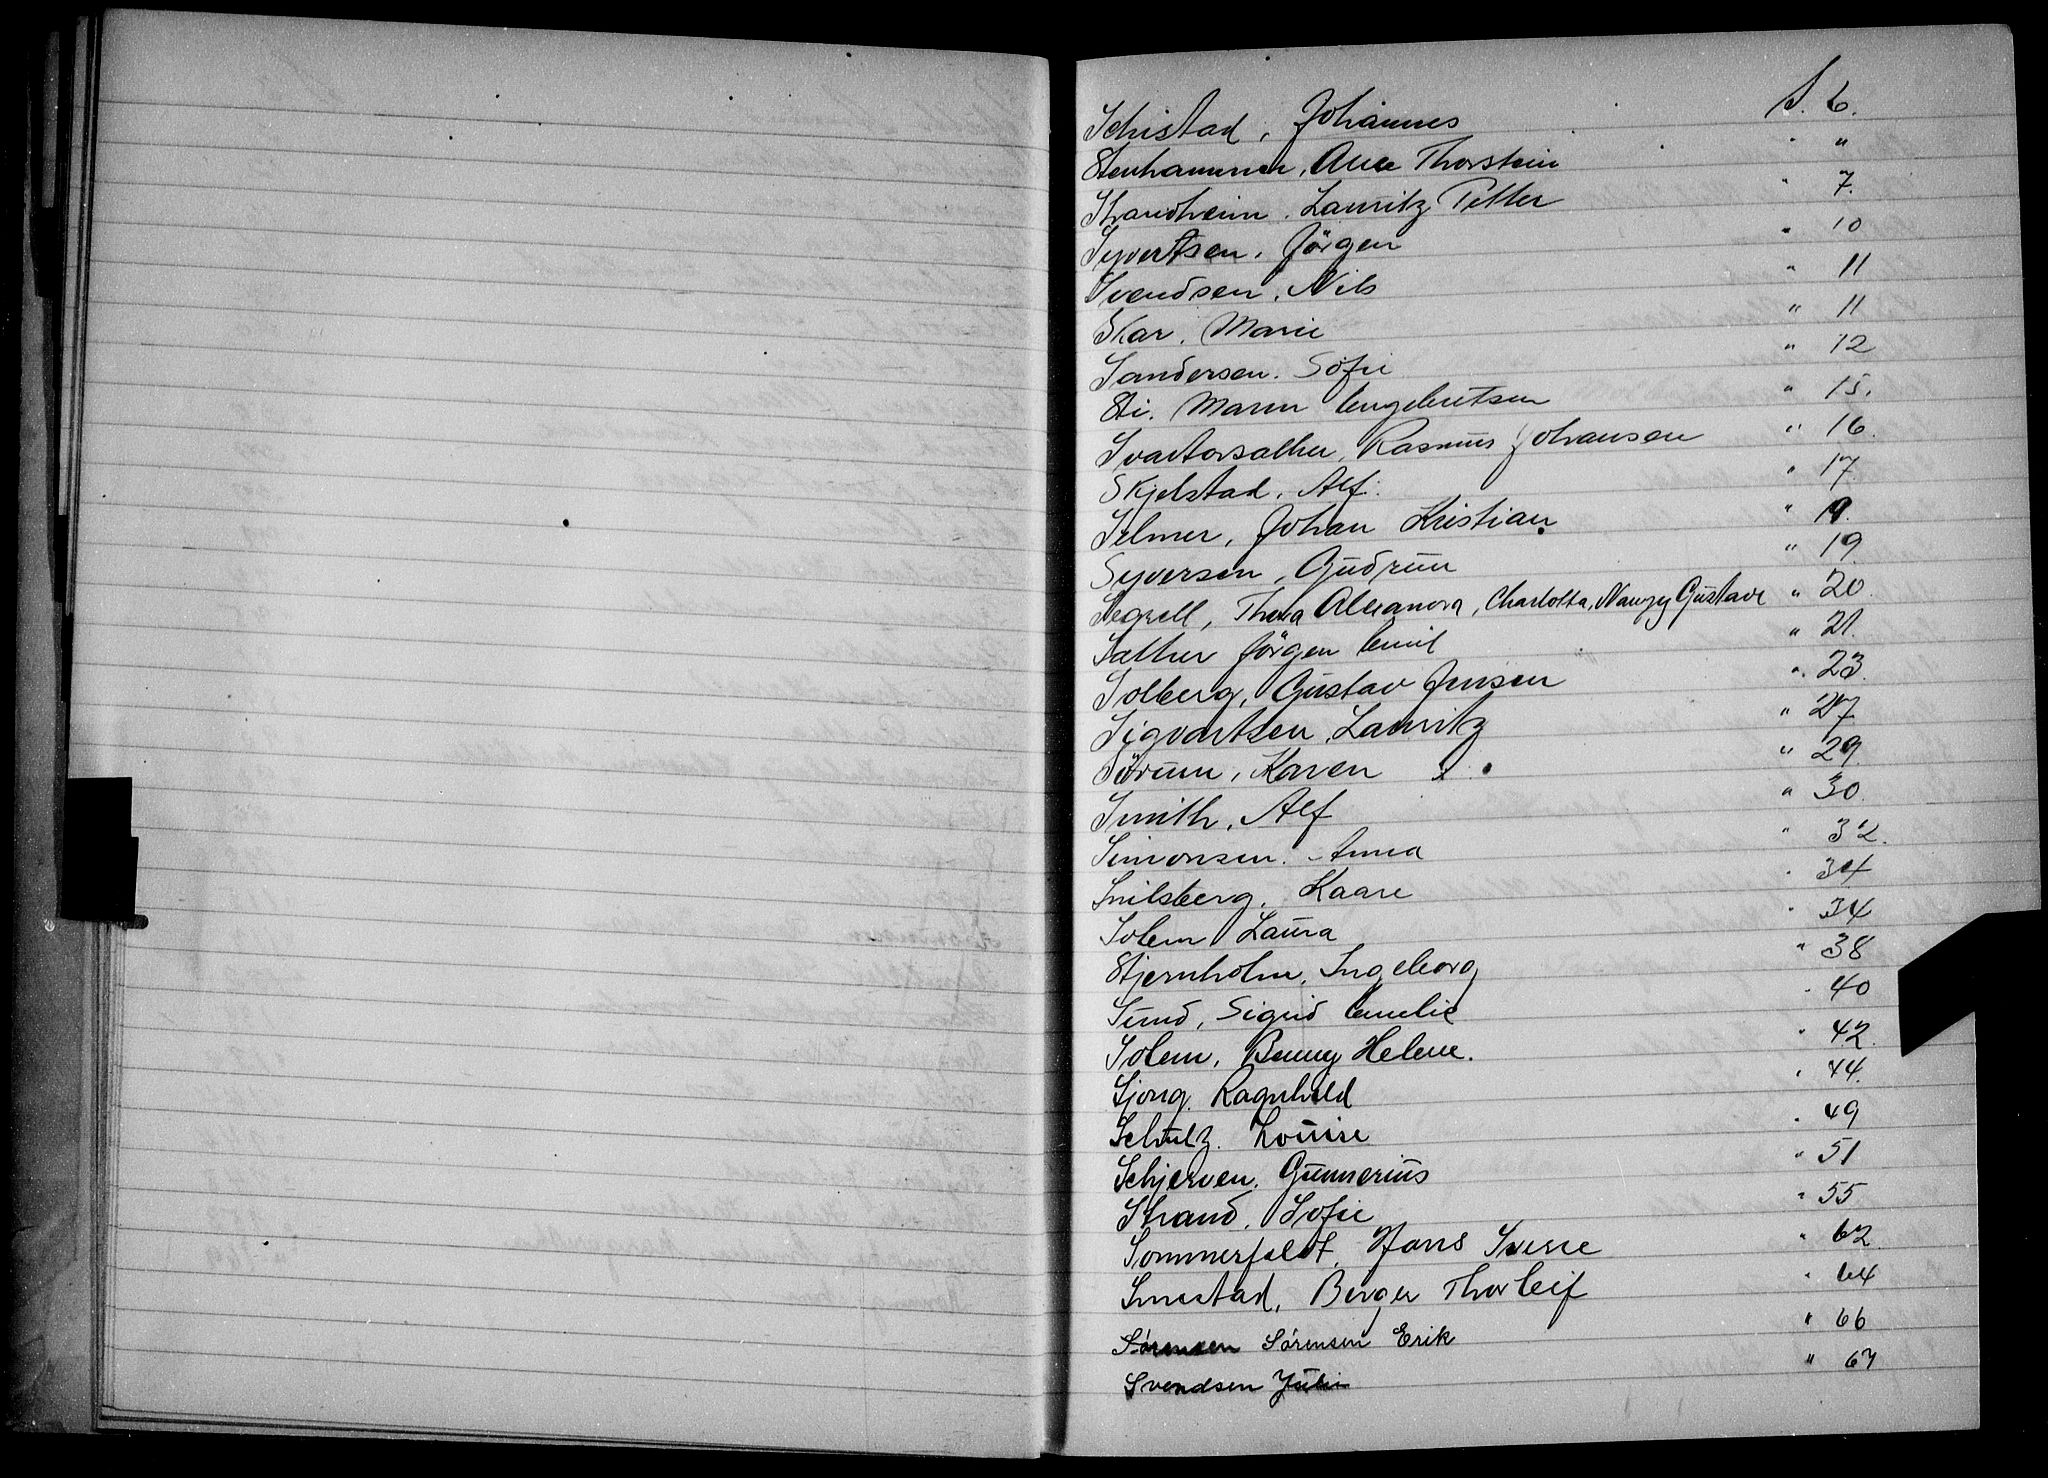 Schistad, Johannes S. 6.
Stenhammer, Thorstein " "
Strandheim, Lauritz Petter " 7.
Syvertsen, Jörgen " 10
Svendsen, Nils " 11
Skar, Marie " 11
Sandersen, Sofie " 12
Sti, Maren Engebretsen " 15.
Svartorsæther, Rasmus Johansen " 16.
Skjelstad, Alf. " 17.
Selmer, Johan Kristian " 19.
Syversen, Gudrun " 19.
Segrell, Thea Alexandra, Charlotta, Nanzy Gustava " 20.
Sæther Jörgen Emil " 21.
Solberg, Gustav Jensen " 23.
Sigvartsen, Lauritz " 27
Sörum, Karen " 29.
Smith, Alf " 30.
Simonsen, Anna " 32.
Snilsberg, Kaare " 34
Solem Laura " 34
Stjernholm, Ingeborg " 38
Sund, Sigrid Emelie " 40
Solem, Benny Helene. " 42.
Sjong, Ragnhild " 44.
Schulz, Louise " 49
Schjerven, Gunnerius " 51
Strand, Sofie " 55
Sommerfeldt, Hans Sverre " 62.
Smestad, Birger Thorleif " 64
Sørensen Sørensen Erik " 66
Svendsen Julie " 67